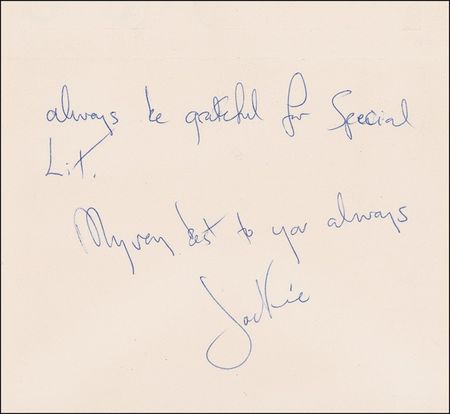 always be grateful for Special
Lit.
My very best to you always
Jackie